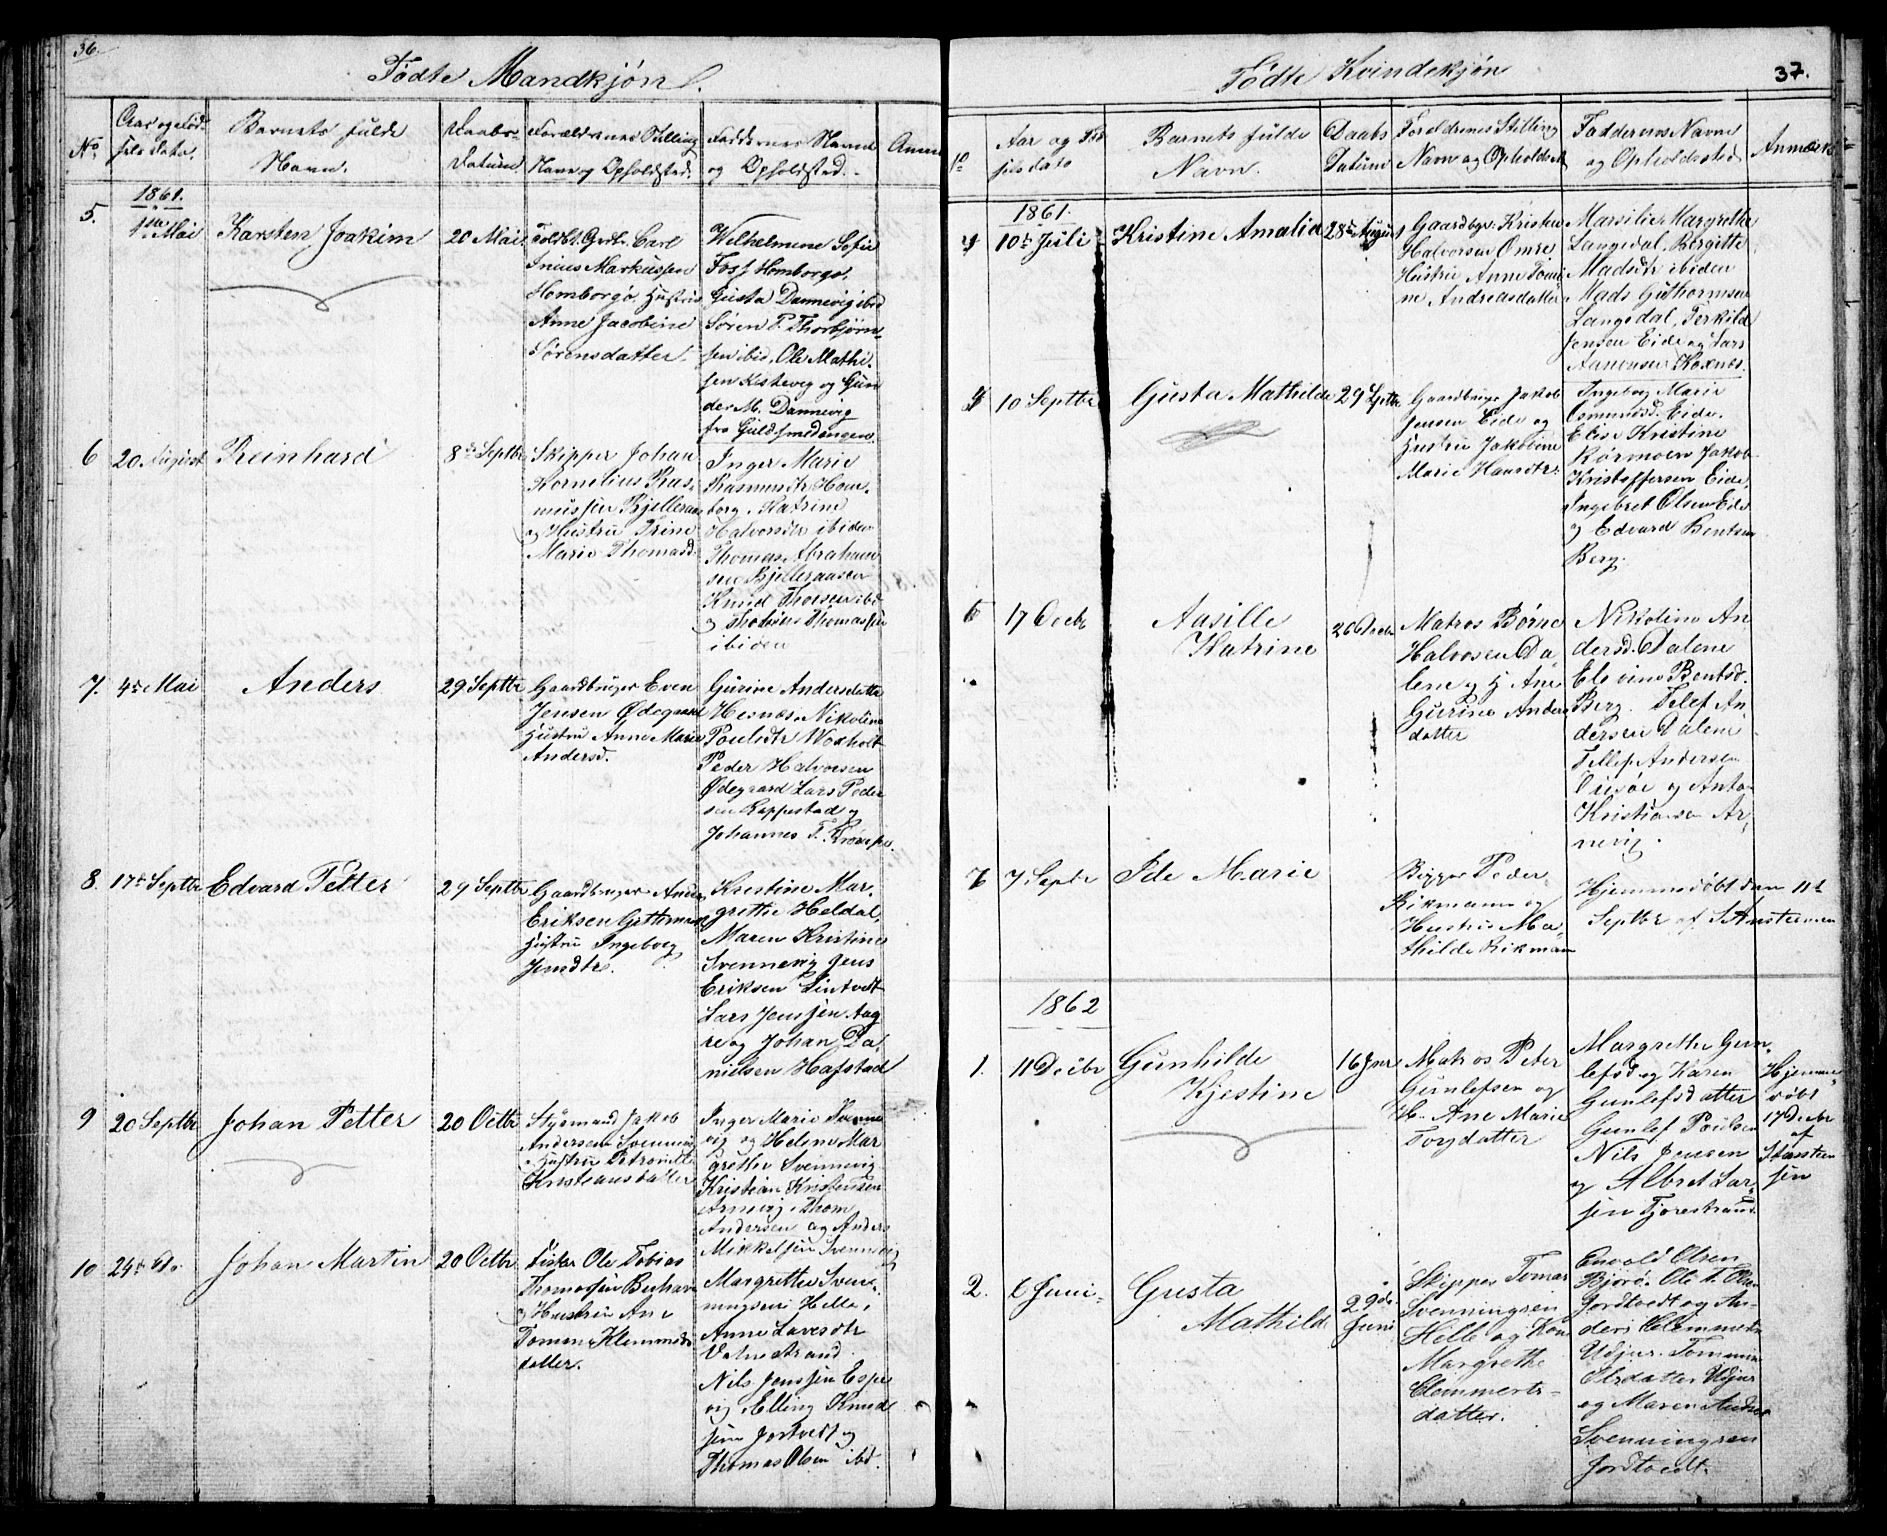 36.
Fødte Mandkjøn.
No.
Aar og Fød-
sels Dato.
Barnets fulde
Navn.
Daabs-
Datum.
Forældrenes Stilling
Navn og Opholdsted.
Faddernes Navne
og Opholdsted.
Anm
1861.
5.
1ste Mai
Karsten Joakim
20 Mai
Carl
Inius Markussen
Homborgø, Hustru
Anne Jacobine
Sørensdatter.
Wilhelmene Sofie
Foss Homborgø,
Gusta Dannevig ibid
Søren P. Thorbjørn-
sen ibid, Ole Mathi-
sen Kistevig og Gun
der M. Dannevig
fra Guldsmedengen
6
20 August
Reinhard
8de Septbr
Skipper Johan
Kornelius Ras-
mussen Bjelleraas
og Hustru Trine
Marie Thomasd.
Inger Marie
Rasmusdtr Hom-
borg, Katrine
Halvorsdtr ibiden
Thomas Abraham
sen Bjelleraasen
Knud Thorsen ibd
og Tobias Thomassen
ibiden
7.
4de Mai
Anders
29 Septbr
Gaardbruger Even
Jensen Ødegaard
Hustru Anne Marie
Andersd.
Gurine Andersdatter
Hesnæs, Nikoline
Poulsdtr Voxholt
Peder Halvorsen
Ødegaard Lars Peder
sen Rappestad og
Johannes T.
8.
17de Septbr
Edvard Petter
29 Septbr
Gaardbruger Anders
Eriksen
Hustru Ingeborg
Jensdtr.
Kristine Mar-
grethe Heldal,
Maren Kristine
Svennevig Jens
Eriksen Lintvedt
Lars Jenssen Aag
re og Johan Da-
nielsen Hafstad
9
20 Septbr
Johan Petter
20 Octbr
Styrmand Jakob
Andersen Svennevig
Hustru Petronelle
Kristiansdatter
Inger Marie Svenne
vig og Helene Mar
grethe Svennevig
Kristian Kristensen
Arnevig, Thom
Andersen og Anders
Mikkelsen Svennevig
10
24de do
Johan Martin
20 Octbr
Fisker Ole Tobias
Thomassen
og Hustru Ane
Tomine Klemmets
datter.
Margrethe Sven-
ningsen Helle,
Anne Lavesdtr
Valøestrand
Nils Jenssen Espe
vig, Elling Knud
sen Jortvedt og
Thomas Olsen ibd.
Fødte Kvindekjøn
37.
No
Aar og Fød
selsdato
Barnets fulde
Navn.
Daabs
Datum
Foreldrenes Stilling
Navn og Opholdsted
Faddernes Navne
og Opholdssted
Anmærk
1861.
4
10de Juli
Kristine Amalia
28de August
Gaardbgr. Kristen
Halvorsen Omre
Hustru Anne Tomi-
ne Andreasdatter
Marsilie Margrethe
Langedal, Bergitte
Madsdtr ibiden
Mads Guthormsen
Langedal, Terkild
Jensen Eide og Lars
Aanonsen
10 Septbr
Gusta Mathilde
29 Septbr
Gaardbruger Jakob
Jensen Eide og
Hustru Jakobine
Marie Hansdtr.
Ingeborg Marie
Osmundsd. Eide,
Elise Kristine
Rørmoen Jakob
Kristoffersen Eide,
Ingebret Olsen Eide
og Edvard Bentsen
Berg.
6
17 Decbr
Aasille
Katrine
26 Decbr
Matros Børne
Halvorsen Da
lene og H Ane
Gurine Anders
datter
Nikoline An
dersd. Dalene
Elevine Bentsd.
Berg. Tellef An
dersen Dalene
Tellef Andersen
og Anto
Kristiansen Ar-
nevig.
7
7 Septbr
Ide Marie
Rigger Peder
Rikmann og
Hustru Ma-
thilde Rikmann
Hjemmedøbt den 11te
Septbr af S Anstensen
1862
1.
11 Decbr
Gunhilde
Kjestine
16 Jnr
Matros Peter
Gunlefsen og
H. Ane Marie
Torgdatter
Margrethe Gun-
lefsd og Karen
Gunlefsdatter
Gunlef Poulsen
Nils Jensen
og Albret Lar-
sen Fjorestrand
Hjemme-
døbt
17 Decbr
af
sen
2.
6 Juni
Gusta
Mathilde
29de
Juni
Skipper Tomas
Svenningsen
Helle og Kone
Margrethe
Clemmerts-
datter.
Envold Olsen
Bjorø. Ole T. Olsen
Jordtvedt og An-
ders Clemmets
Udjur. Tommine
Olsdatter Udjur
og Maren Andrea
Svenningsen
Jordtvedt.